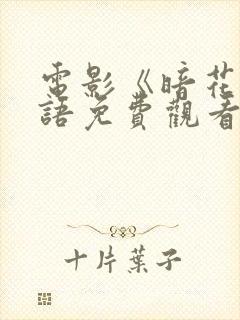 電影《暗花
語免費觀看
十片葉子